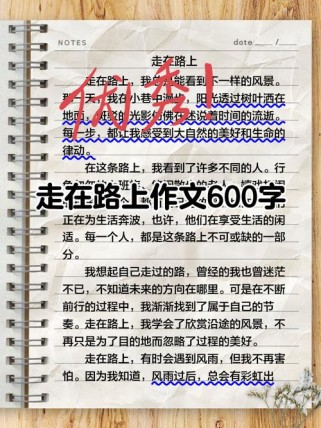 NOTES
date
走在路上
走在路上，我
能看到不一样的风景。
天，我在小巷中漫步，阳光透过树叶洒在
地面，斑驳的光影仿佛在述说着时间的流逝。
每一步，都让我感受到大自然的美好和生命的
律动。
优秀！
在这条路上，我看到了许多不同的人。行
走在路上作文600字
正在为生活奔波，也许，他们在享受生活的闲
适。每一个人，都是这条路上不可或缺的一部
分。
我想起自己走过的路，曾经的我也曾迷茫
不已，不知道未来的方向在哪里。可是在不断
前行的过程中，我渐渐找到了属于自己的节
奏。走在路上，我学会了欣赏沿途的风景，不
再只是为了目的地而忽略了过程的美好。
走在路上，有时会遇到风雨，但我不再害
怕。因为我知道，风雨过后，总会有彩虹出